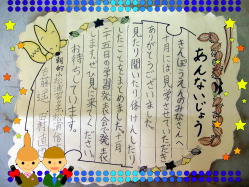 あんないじょう
きんぽうえんのみなさんへ
十月には見学させていただき
ありがとうございました。
見たり聞いたり体けんしたり
したことをまとめました。十一月
二十五日の学習発表会で発表
します。ぜひ見に来てください。
お待ちしています。